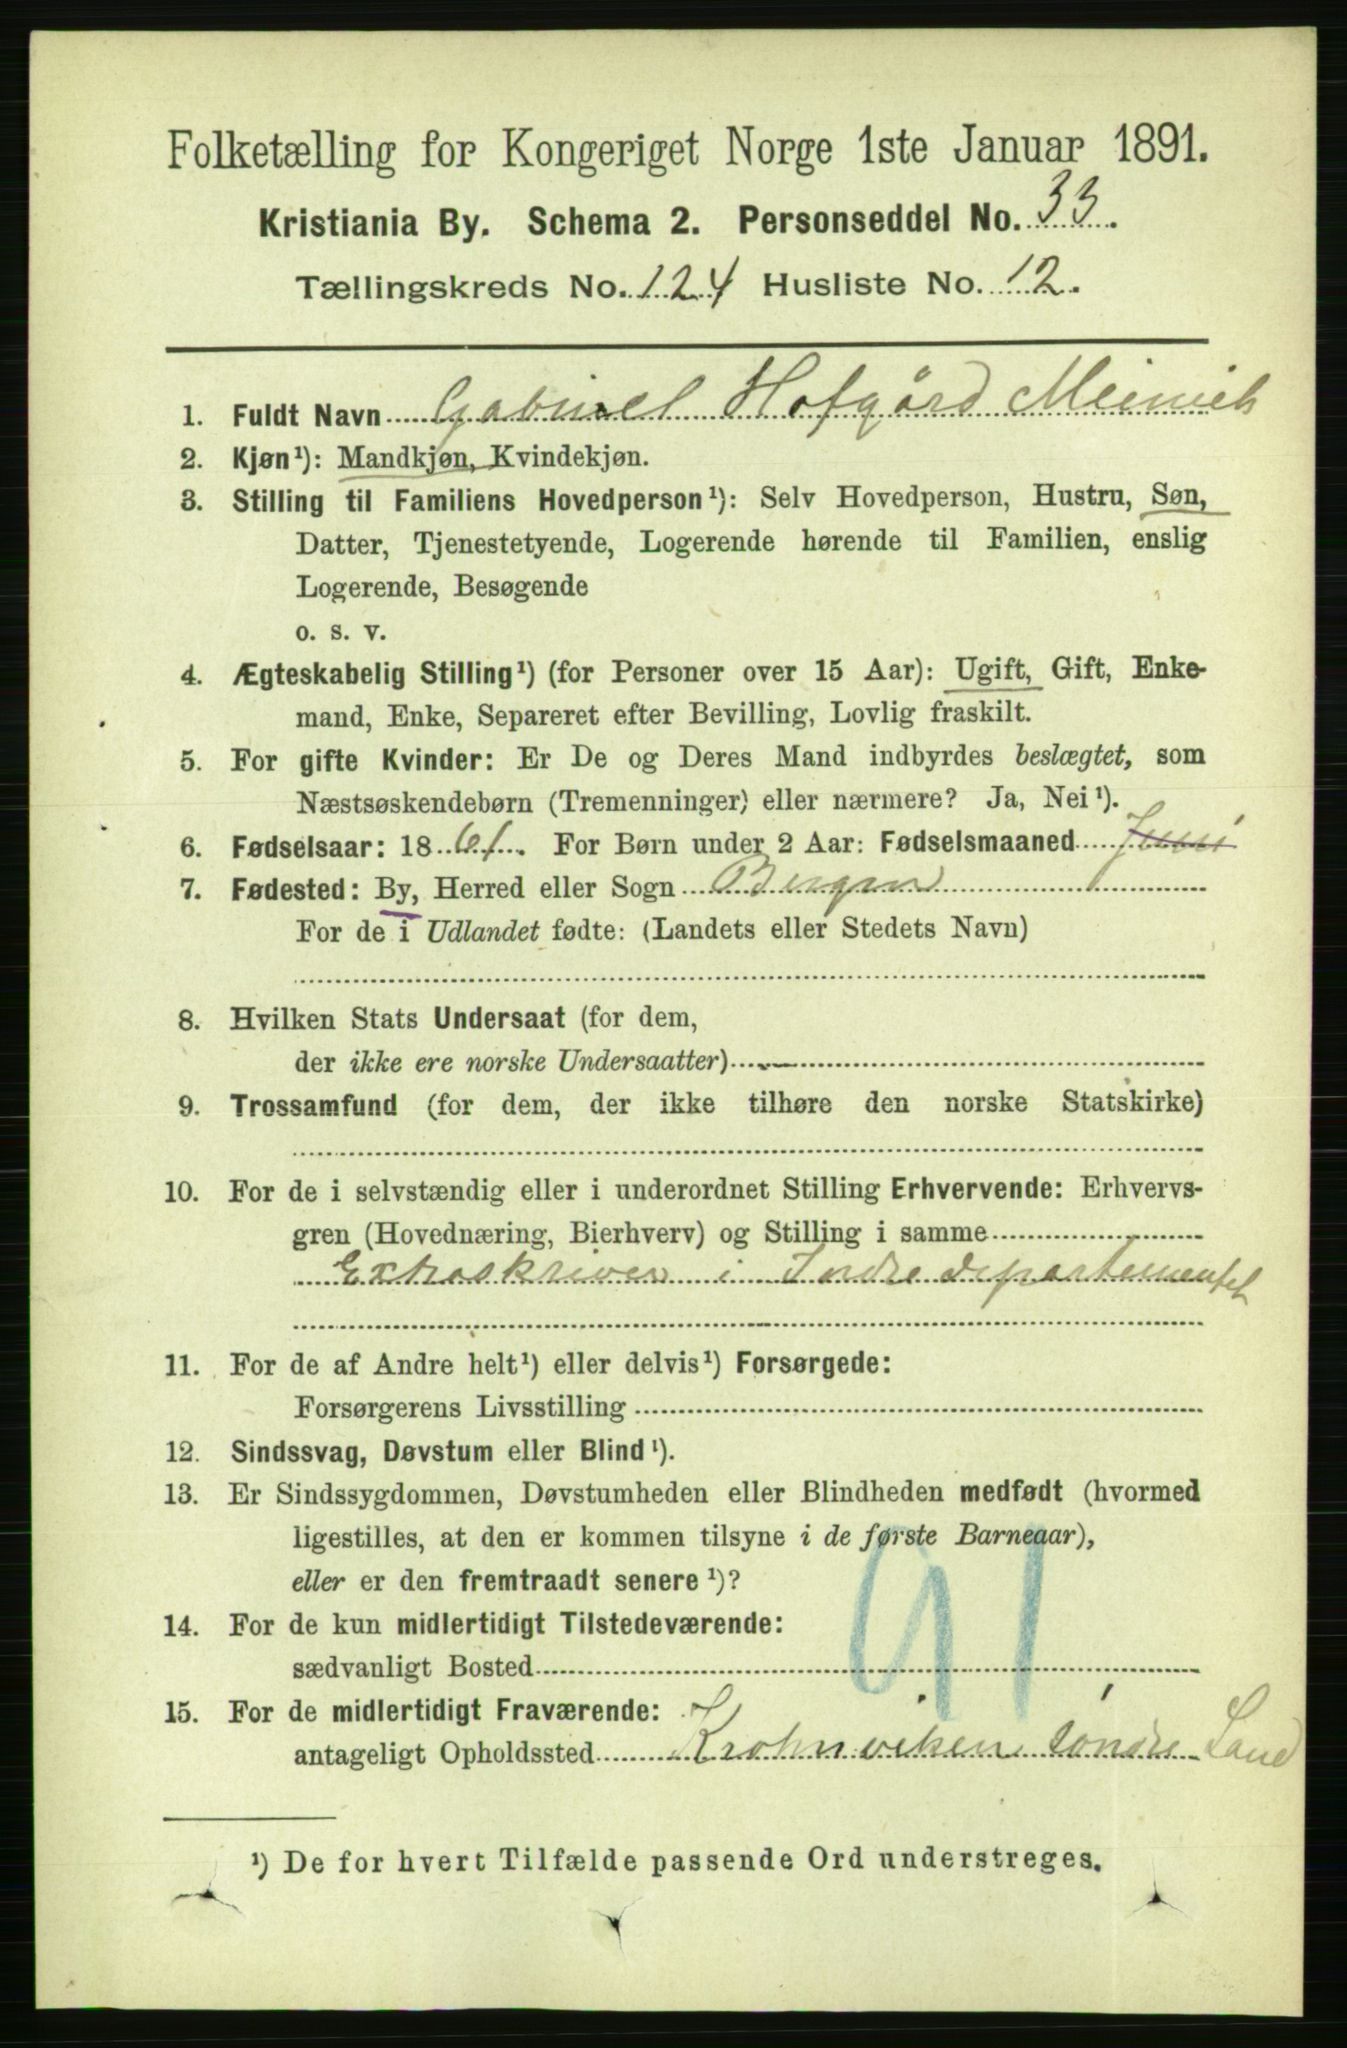 Folketælling for Kongeriget Norge 1ste Januar 1891.
Kristiania By. Schema 2. Personseddel No. 33.
Tællingskreds No. 124 Husliste No. 12.
1. Fuldt Navn Gabriel Hofgård Meinich
2. Kjøn¹): Mandkjøn, Kvindekjøn.
3. Stilling til Familiens Hovedperson¹): Selv Hovedperson, Hustru, Søn,
Datter, Tjenestetyende, Logerende hørende til Familien, enslig
Logerende, Besøgende
o. s. v.
4. Ægteskabelig Stilling¹) (for Personer over 15 Aar): Ugift, Gift, Enke-
mand, Enke, Separeret efter Bevilling, Lovlig fraskilt.
5. For gifte Kvinder: Er De og Deres Mand indbyrdes beslægtet, som
Næstsøskendebørn (Tremenninger) eller nærmere? Ja, Nei¹).
6. Fødselsaar: 1861. For Børn under 2 Aar: Fødselsmaaned Juni
7. Fødested: By, Herred eller Sogn Bergen
For de i Udlandet fødte: (Landets eller Stedets Navn)
8. Hvilken Stats Undersaat (for dem,
der ikke ere norske Undersaatter)
9. Trossamfund (for dem, der ikke tilhøre den norske Statskirke)
10. For de i selvstændig eller i underordnet Stilling Erhvervende: Erhvervs-
gren (Hovednæring, Bierhverv) og Stilling i samme
Extraskriver i Indredepartementet
11. For de af Andre helt¹) eller delvis¹) Forsørgede:
Forsørgerens Livsstilling
12. Sindssvag, Døvstum eller Blind¹).
13. Er Sindssygdommen, Døvstumheden eller Blindheden medfødt (hvormed
ligestilles, at den er kommen tilsyne i de første Barneaar),
eller er den fremtraadt senere¹)?
91
14. For de kun midlertidigt Tilstedeværende:
sædvanligt Bosted
15. For de midlertidigt Fraværende:
antageligt Opholdssted Krohnviken söndre Land
¹) De for hvert Tilfælde passende Ord understreges.